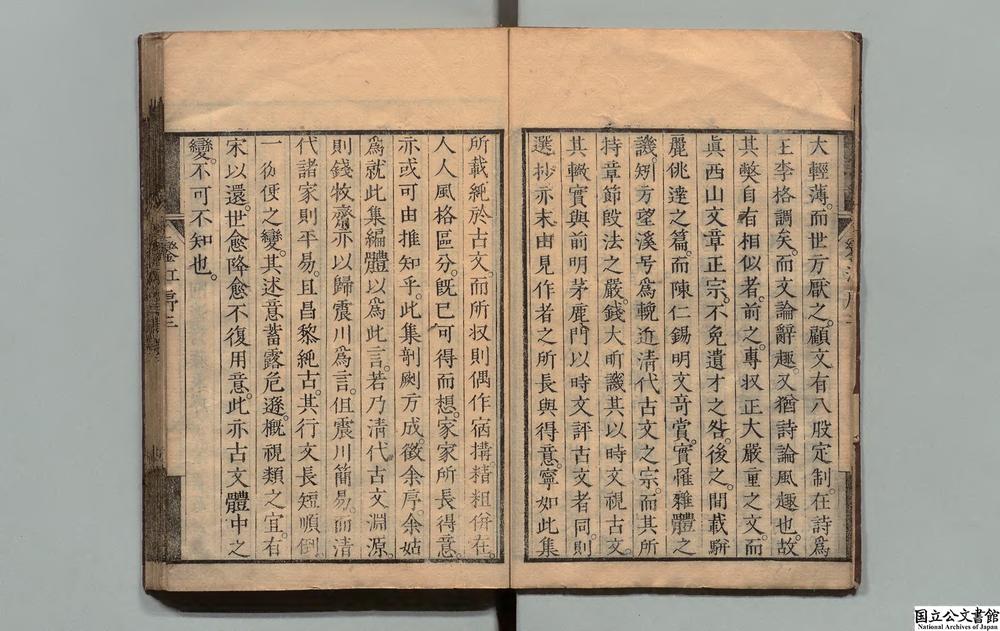 大輕薄。而世方厭之。顧文有八股定制。在詩爲
王李格調矣。而文論辭趣。又猶詩論風趣也。故
其獘自有相似者。前之專収正大嚴重之文。而
眞西山文章正宗。不免遺才之咎。後之間載駢
麗佻達之篇。而陳仁錫明文奇賞。實罹雜體之
譏。矧方望溪号爲輓近清代古文之宗。而其所
持章節段法之嚴。錢大昕譏其以時文視古文。
其轍實與前明茅鹿門以時文評古文者同。則
選抄亦末由見作者之所長與得意。寧如此集
所載純於古文。而所収則偶作宿搆。精粗併在。
人人風格區分。既已可得而想。家家所長得意。
亦或可由推知乎。此集剞劂方成。徵余序。余姑
爲就此集編體以爲此言。若乃清代古文淵源。
則錢牧齋亦以歸震川爲言。但震川簡易。而清
代諸家則平易。且昌黎純古。其行文長短順倒
一仭便之變。其述意蓄露危遜。概視類之宜。有
宋以還。世愈降愈不復用意。此亦古文體中之
變。不可不知也。
序三
国立公文書館
National Archives of Japan